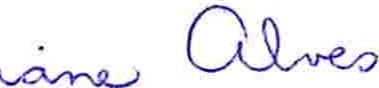 iane Alves